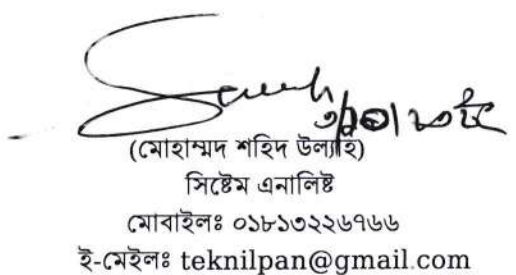 (মোহাম্মদ শহিদ উল্যাহ)
সিষ্টেম এনালিষ্ট
মোবাইলঃ ০১৮১৩২২৬৭৬৬
ই-মেইলঃ teknilpan@gmail.com